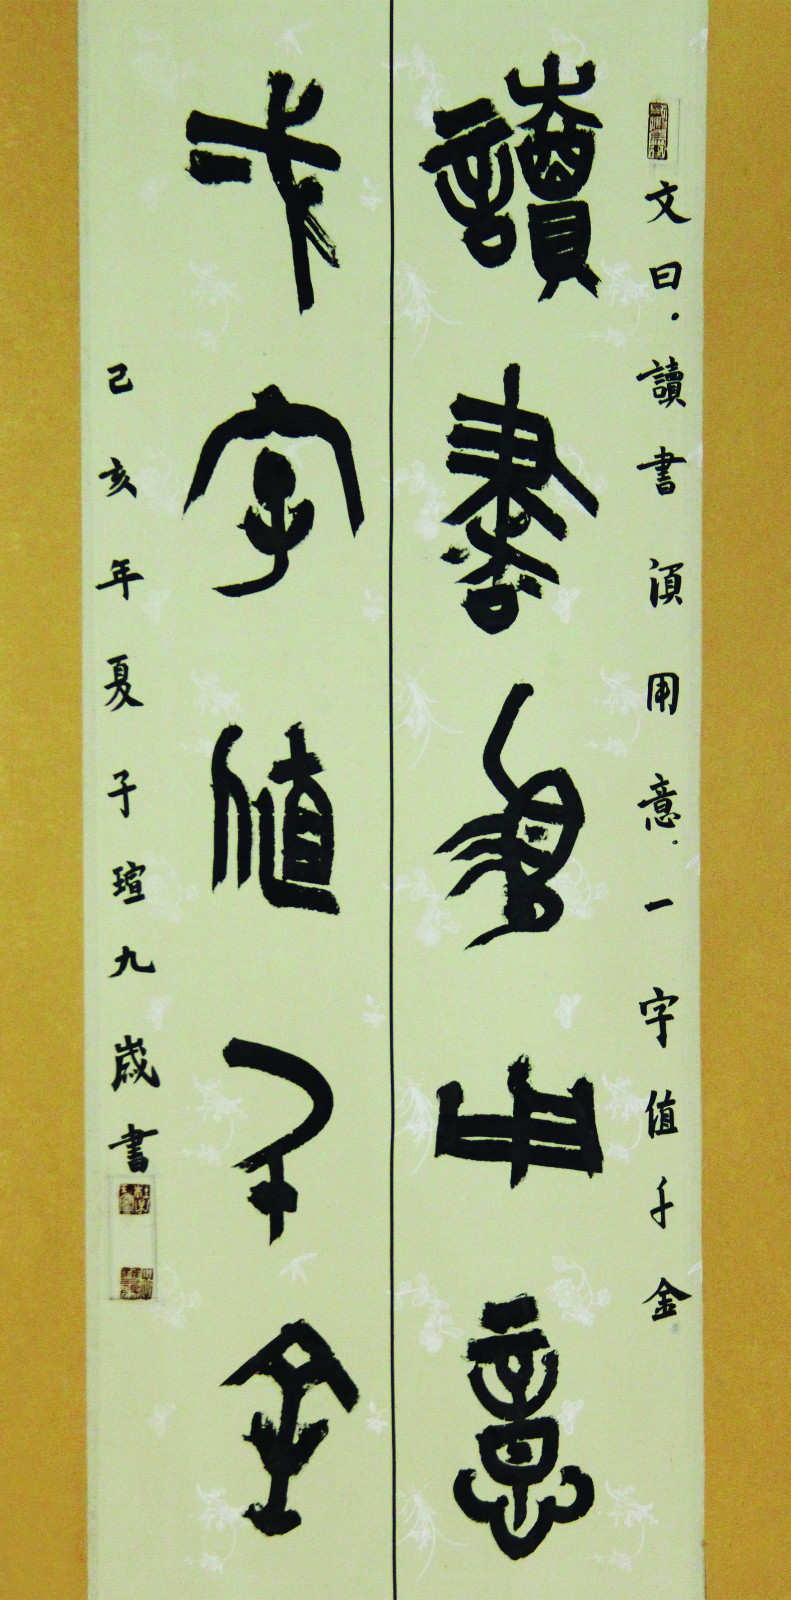 文曰．讀書須用意．一字值千金
讀書須用意
弌字值千金
己亥年夏子瑄九歲書